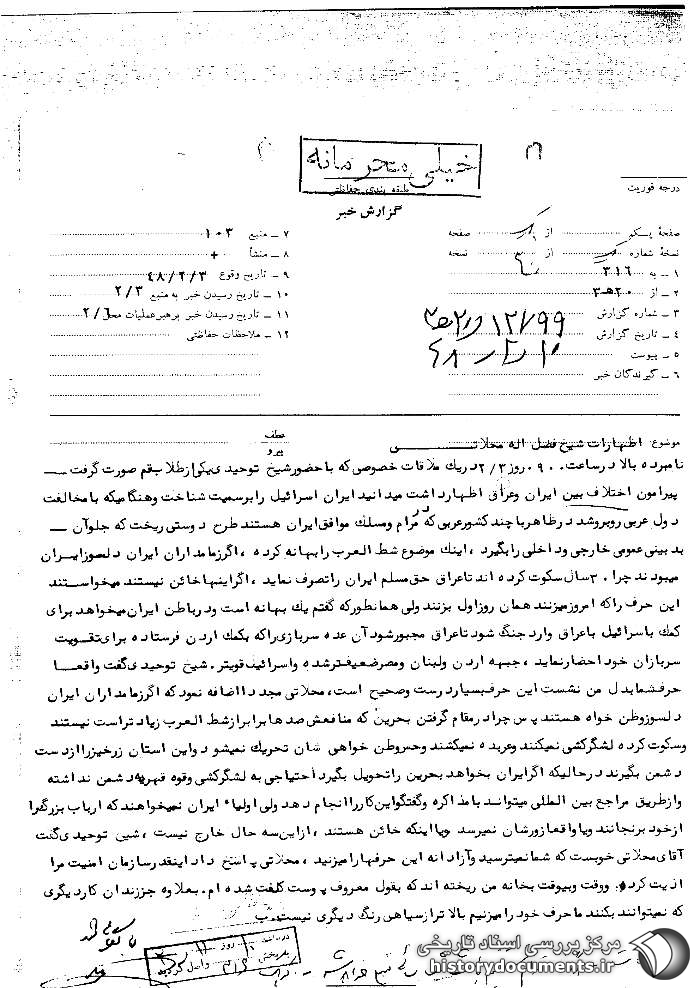 خیلی محرمانه
طبقه بندی حفاظتی
گزارش خبر
درجه فوریت
صفحهٔ یک از یک صفحه
نسخهٔ شماره از نسخه
۱ ـ به ۳۱۶
۲ ـ از ۲۰هـ۳
۳ ـ شماره گزارش ۱۲۷۹۹
۴ ـ تاریخ گزارش
۵ ـ پیوست
۶ ـ گیرندگان خبر
۷ ـ منبع ۱۰۳
۸ ـ منشأ
۹ ـ تاریخ وقوع ۴۸/۲/۳
۱۰ ـ تاریخ رسیدن خبر به منبع ۲/۳
۱۱ ـ تاریخ رسیدن خبر برهبر عملیات محل ۲/۶
۱۲ ـ ملاحظات حفاظتی
موضوع: اظهارات شیخ فضل اله محلاتی
عطف
پیرو
نامبرده بالا در ساعت ۰۹۰۰ روز ۲/۳ در یک ملاقات خصوصی که با حضور شیخ توحیدی یکی از طلاب قم صورت گرفت
پیرامون اختلاف بین ایران و عراق اظهار داشت میدانید ایران اسرائیل را برسمیت شناخت و هنگامیکه با مخالفت
دول عربی روبرو شد در ظاهر با چند کشور عربی که در مرام و مسلک موافق ایران هستند طرح دوستی ریخت که جلو آن
بدبینی عمومی خارجی و داخلی را بگیرد ، اینک موضوع شط العرب را بهانه کرده ، اگر زمامداران ایران دلسوز ایران
میبودند چرا ۳۰ سال سکوت کرده اند تا عراق حق مسلم ایران را تصرف نماید ، اگر اینها خائن نیستند میخواستند
این حرف را که امروز میزنند همان روز اول بزنند ولی همانطور که گفتم یک بهانه است و در باطن ایران میخواهد برای
کمک باسرائیل با عراق وارد جنگ شود تا عراق مجبور شود آن عده سربازی را که بکمک اردن فرستاده برای تقویت
سربازان خود احضار نماید ، جبهه اردن و لبنان و مصر ضعیفتر شده و اسرائیل قویتر . شیخ توحیدی گفت واقعا
حرف شما بدل من نشست این حرف بسیار درست و صحیح است ، محلاتی مجددا اضافه نمود که اگر زمامداران ایران
دلسوز وطن خواه هستند پس چرا در مقام گرفتن بحرین که منافعش صدها برابر از شط العرب زیادتر است نیستند
و سکوت کرده لشگرکشی نمیکنند و عربده نمیکشند و حس وطن خواهی شان تحریک نمیشود و این استان زرخیز را از دست
دشمن بگیرند در حالیکه اگر ایران بخواهد بحرین را تحویل بگیرد احتیاجی به لشگرکشی و قوه قهریه دشمن نداشته
و از طریق مراجع بین المللی میتوانند با مذاکره و گفتگو این کار را انجام دهد ولی اولیاء ایران نمیخواهند که ارباب بزرگ را
از خود برنجانند و یا واقعا زورشان نمیرسد و یا اینکه خائن هستند ، از این سه حال خارج نیست ، شیخ توحیدی گفت
آقای محلاتی خوبست که شما نمیترسید و آزادانه این حرفها را میزنید ، محلاتی پاسخ داد اینقدر سازمان امنیت مرا
اذیت کرده و وقت و بیوقت بخانه من ریخته اند که بقول معروف پوست کلفت شده ام . بعلاوه جز زندان کار دیگری
که نمیتوانند بکنند ما حرف خود را میزنیم بالاتر از سیاهی رنگ دیگری نیست. ب
مرکز بررسی اسناد تاریخی
historydocuments.ir